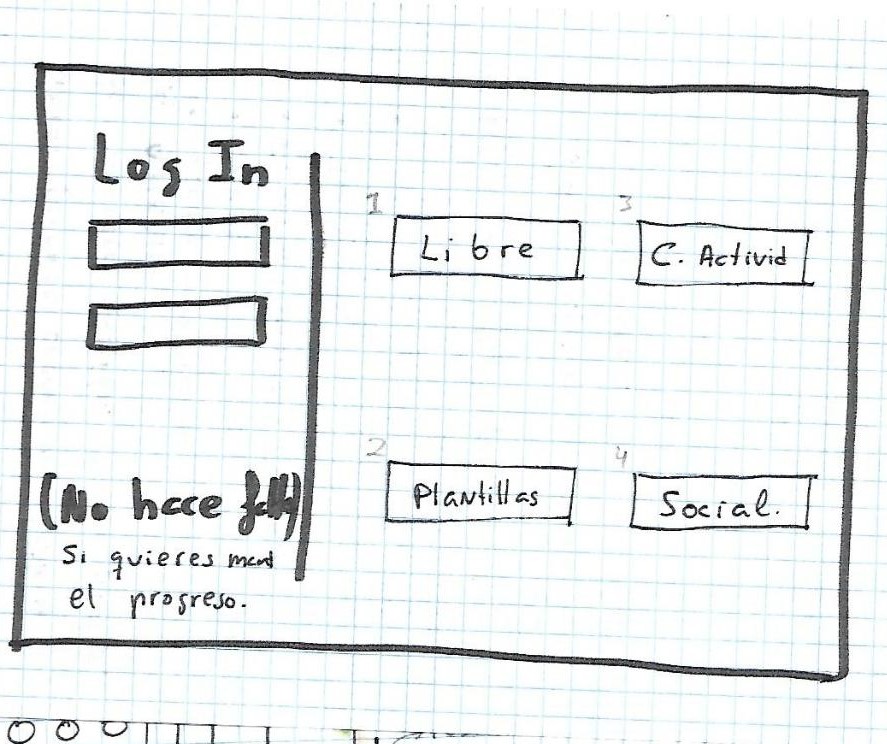 Log In
(No hace falta)
Si quieres
el progreso.
1
Libre
3
C. Activid
2
Plantillas
4
Social.